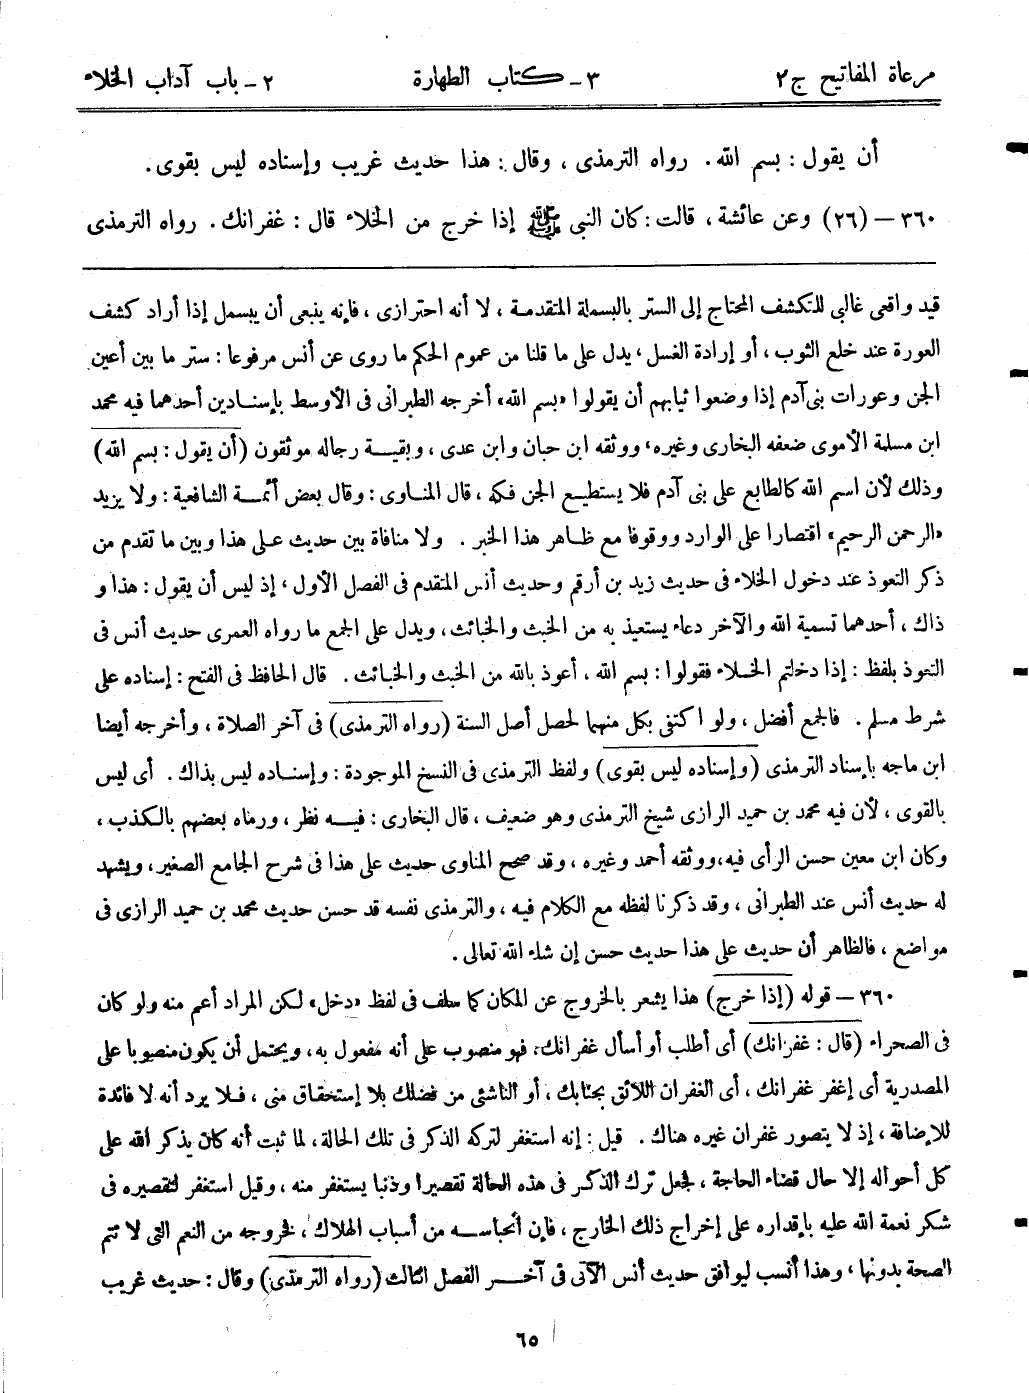 مرعاة المفاتيح ج٢ ٣ـ كتاب الطهارة ٢ـ باب آداب الخلاء
أن يقول : بسم الله . رواه الترمذى ، وقال : هذا حديث غريب وإسناده ليس بقوى .
٣٦٠ – (٢٦) وعن عائشة ، قالت : كان النبى ﷺ إذا خرج من الخلاء قال : غفرانك . رواه الترمذى
قيد واقعى غالبى للتكشف المحتاج إلى الستر بالبسملة المتقدمة ، لا أنه احترازى ، فإنه ينبغى أن يبسمل إذا أراد كشف
العورة عند خلع الثوب ، أو إرادة الغسل ، يدل على ما قلنا من عموم الحكم ما روى عن أنس مرفوعا : ستر ما بين أعين
الجن وعورات بنى آدم إذا وضعوا ثيابهم أن يقولوا «بسم الله» أخرجه الطبرانى فى الأوسط بإسنادين أحدهما فيه محمد
ابن مسلمة الأموى ضعفه البخارى وغيره، ووثقه ابن حبان وابن عدى ، وبقية رجاله موثقون (أن يقول : بسم الله)
وذلك لأن اسم الله كالطابع على بنى آدم فلا يستطيع الجن فكه ، قال المناوى : وقال بعض أئمة الشافعية : ولا يزيد
«الرحمن الرحيم» اقتصارا على الوارد ووقوفا مع ظاهر هذا الخبر . ولا منافاة بين حديث على هذا وبين ما تقدم من
ذكر التعوذ عند دخول الخلاء فى حديث زيد بن أرقم وحديث أنس المتقدم فى الفصل الأول ، إذ ليس أن يقول : هذا و
ذاك ، أحدهما تسمية الله والآخر دعاء يستعيذ به من الخبث والخبائث، ويدل على الجمع ما رواه العمرى حديث أنس فى
التعوذ بلفظ : إذا دخلتم الخلاء فقولوا : بسم الله ، أعوذ بالله من الخبث والخبائث . قال الحافظ فى الفتح : إسناده على
شرط مسلم . فالجمع أفضل ، ولو اكتفى بكل منهما لحصل أصل السنة (رواه الترمذى) فى آخر الصلاة ، وأخرجه أيضا
ابن ماجه بإسناد الترمذى (وإسناده ليس بقوى) ولفظ الترمذى فى النسخ الموجودة : وإسناده ليس بذاك . أى ليس
بالقوى ، لأن فيه محمد بن حميد الرازى شيخ الترمذى وهو ضعيف ، قال البخارى : فيه نظر ، ورماه بعضهم بالكذب ،
وكان ابن معين حسن الرأى فيه، ووثقه أحمد وغيره ، وقد صحح المناوى حديث على هذا فى شرح الجامع الصغير، ويشهد
له حديث أنس عند الطبرانى ، وقد ذكرنا لفظه مع الكلام فيه ، والترمذى نفسه قد حسن حديث محمد بن حميد الرازى فى
مواضع ، فالظاهر أن حديث على هذا حديث حسن إن شاء الله تعالى .
٣٦٠ – قوله (إذا خرج) هذا يشعر بالخروج عن المكان كما سلف فى لفظ «دخل» لكن المراد أعم منه ولو كان
فى الصحراء (قال : غفرانك) أى أطلب أو أسأل غفرانك، فهو منصوب على أنه مفعول به، ويحتمل أن يكون منصوبا على
المصدرية أى إغفر غفرانك ، أى الغفران اللائق بجنابك ، أو الناشئى من فضلك بلا إستحقاق منى ، فلا يرد أنه لا فائدة
للإضافة ، إذ لا يتصور غفران غيره هناك . قيل : إنه استغفر لتركه الذكر فى تلك الحالة ، لما ثبت أنه كان يذكر الله على
كل أحواله إلا حال قضاء الحاجة ، فجعل ترك الذكر فى هذه الحالة تقصيرا وذنبا يستغفر منه ، وقيل استغفر لتقصيره فى
شكر نعمة الله عليه بإقداره على إخراج ذلك الخارج ، فإن انحباسه من أسباب الهلاك ، فخروجه من النعم التى لا تتم
الصحة بدونها ، وهذا أنسب ليوافق حديث أنس الآتى فى آخر الفصل الثالث (رواه الترمذى) وقال : حديث غريب
٦٥